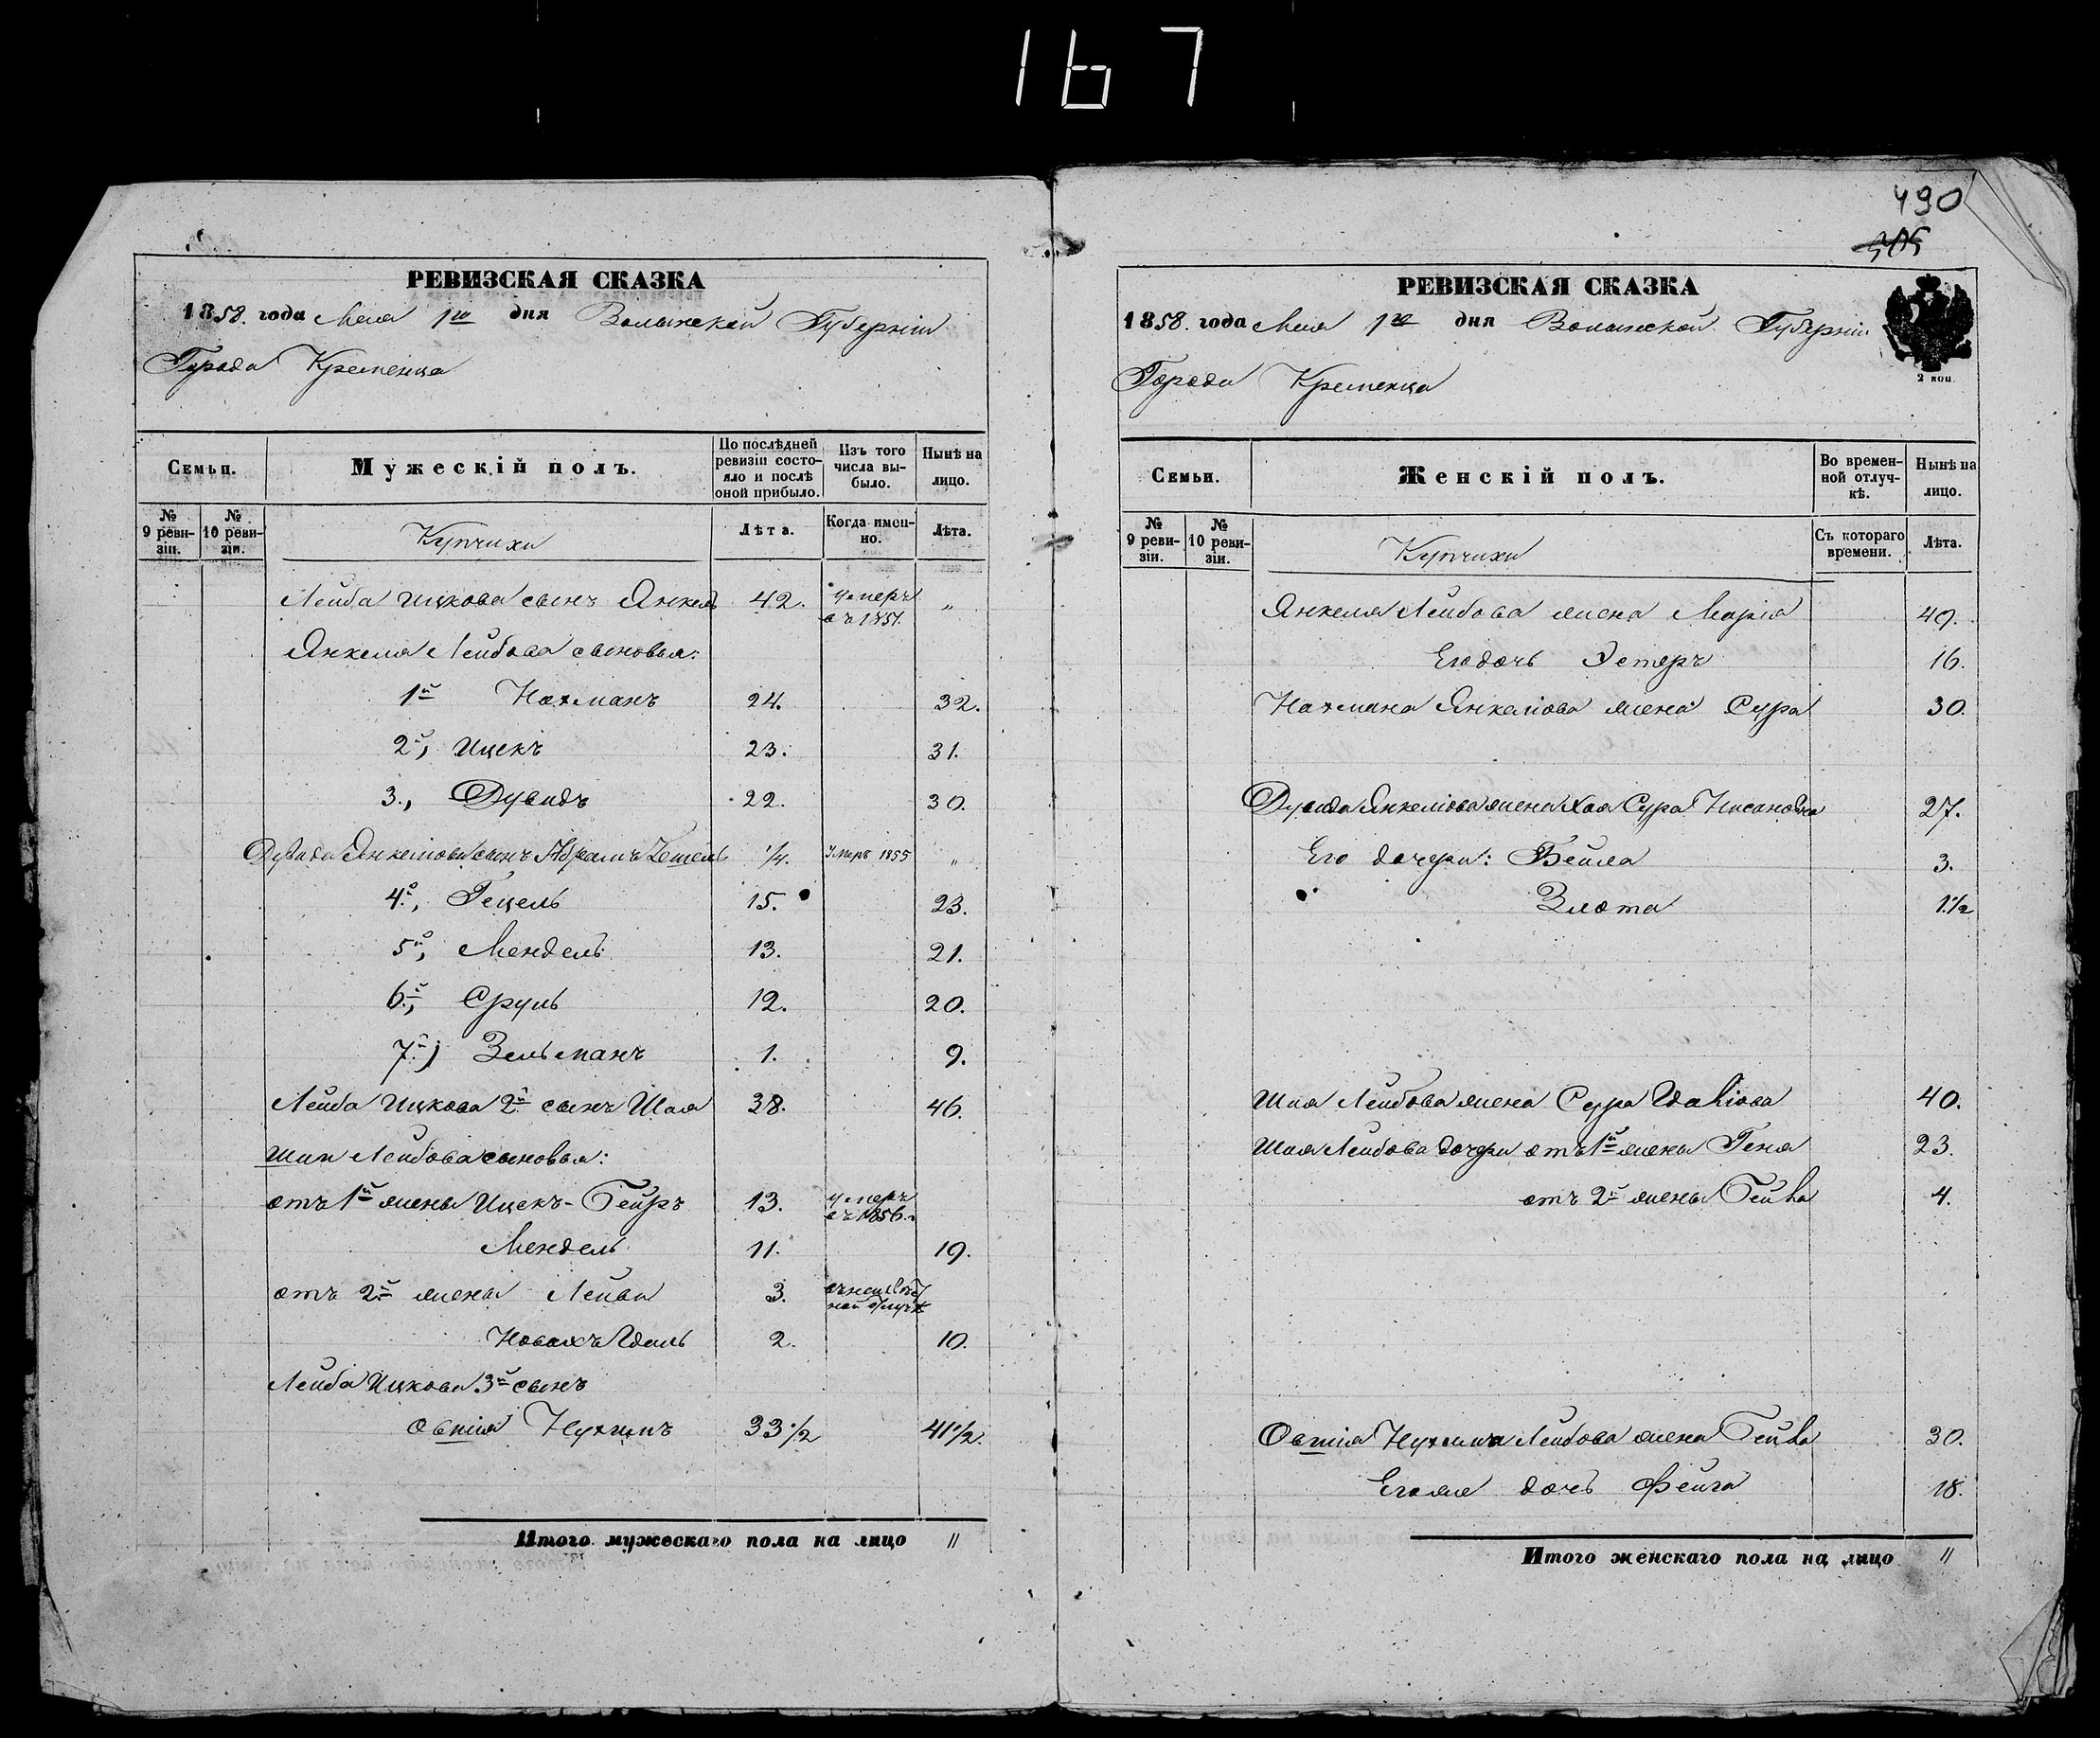 167
РЕВИЗСКАЯ СКАЗКА
1858. года Мая 1го дня Волынской Губернии
Города Кременца
Семьи.
Мужескій полъ.
По послѣдней ревизіи состояло и послѣ оной прибыло.
Изъ того числа выбыло.
Нынѣ на лицо.
№ 9 ревизіи.
№ 10 ревизіи.
Купчихи
Лѣта.
Когда именно.
Лѣта.
Лейба Ицкова сынъ Янкель 42. умеръ въ 1851. "
Янкеля Лейбова сыновья:
1й Нахманъ 24. 32.
2й, Ицекъ 23. 31.
3., Дувидъ 22. 30.
Дувида Янкеліова сынъ Абрамъ 1/4. Умеръ 1855 "
4й, Гецель 15. 23.
5й, Мендель 13. 21.
6й, Сруль 12. 20.
7й) Зельманъ 1. 9.
Лейба Ицкова 2й сынъ Шая 38. 46.
Шаи Лейбова сыновья:
отъ 1й жены Ицекъ- 13. умеръ въ 1856.
Мендель 11. 19.
отъ 2й жены 3.
2. 10.
Лейба Ицкова 3й сынъ
Овшія Нухимъ 33 1/2 41 1/2.
Итого мужескаго пола на лицо "
490
505
РЕВИЗСКАЯ СКАЗКА
1858. года Мая 1го дня Волынской Губерніи
Города Кременца
2 коп
Семьи.
Женскій полъ.
Во временной отлучкѣ.
Нынѣ на лицо.
№ 9 ревизіи.
№ 10 ревизіи.
Купчихи
Съ котораго времени.
Лѣта.
Янкеля Лейбова жена Марія 49.
Его дочь Эстеръ 16.
Нахмана Янкеліова жена Сура 30.
Дувида Янкеліова жена Хая Сура Нисановна 27.
Его дочери: Бейла 3.
Злота 1 1/2
Шая Лейбова жена Сура 40.
Шая Лейбова дочери отъ 1й жены Геня 23.
отъ 2й жены 4.
Овшія Нухима Лейбова жена 30.
Его же дочь Фейга 18.
Итого женскаго пола на лицо "